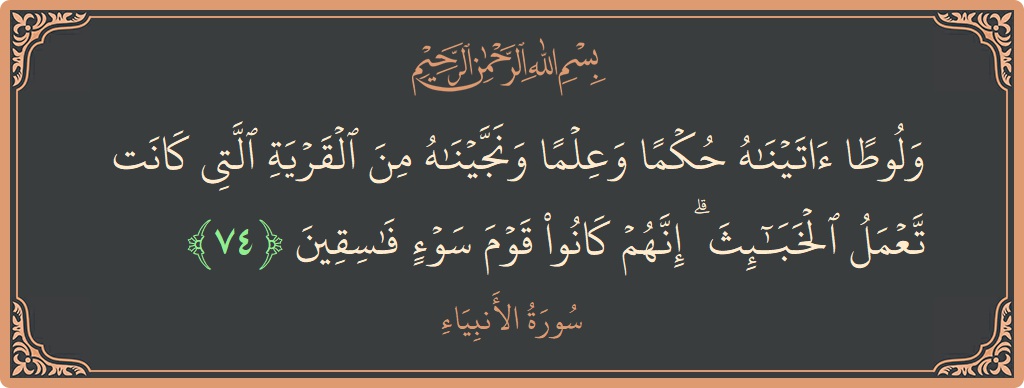 بِسْمِ اللهِ الرَّحْمٰنِ الرَّحِيْمِ
وَلُوطًا ءَاتَيْنَٰهُ حُكْمًا وَعِلْمًا وَنَجَّيْنَٰهُ مِنَ ٱلْقَرْيَةِ ٱلَّتِى كَانَت
تَّعْمَلُ ٱلْخَبَٰٓئِثَ ۗ إِنَّهُمْ كَانُوا۟ قَوْمَ سَوْءٍ فَٰسِقِينَ ﴿٧٤﴾
سُورَةُ الأَنبِيَاءِ